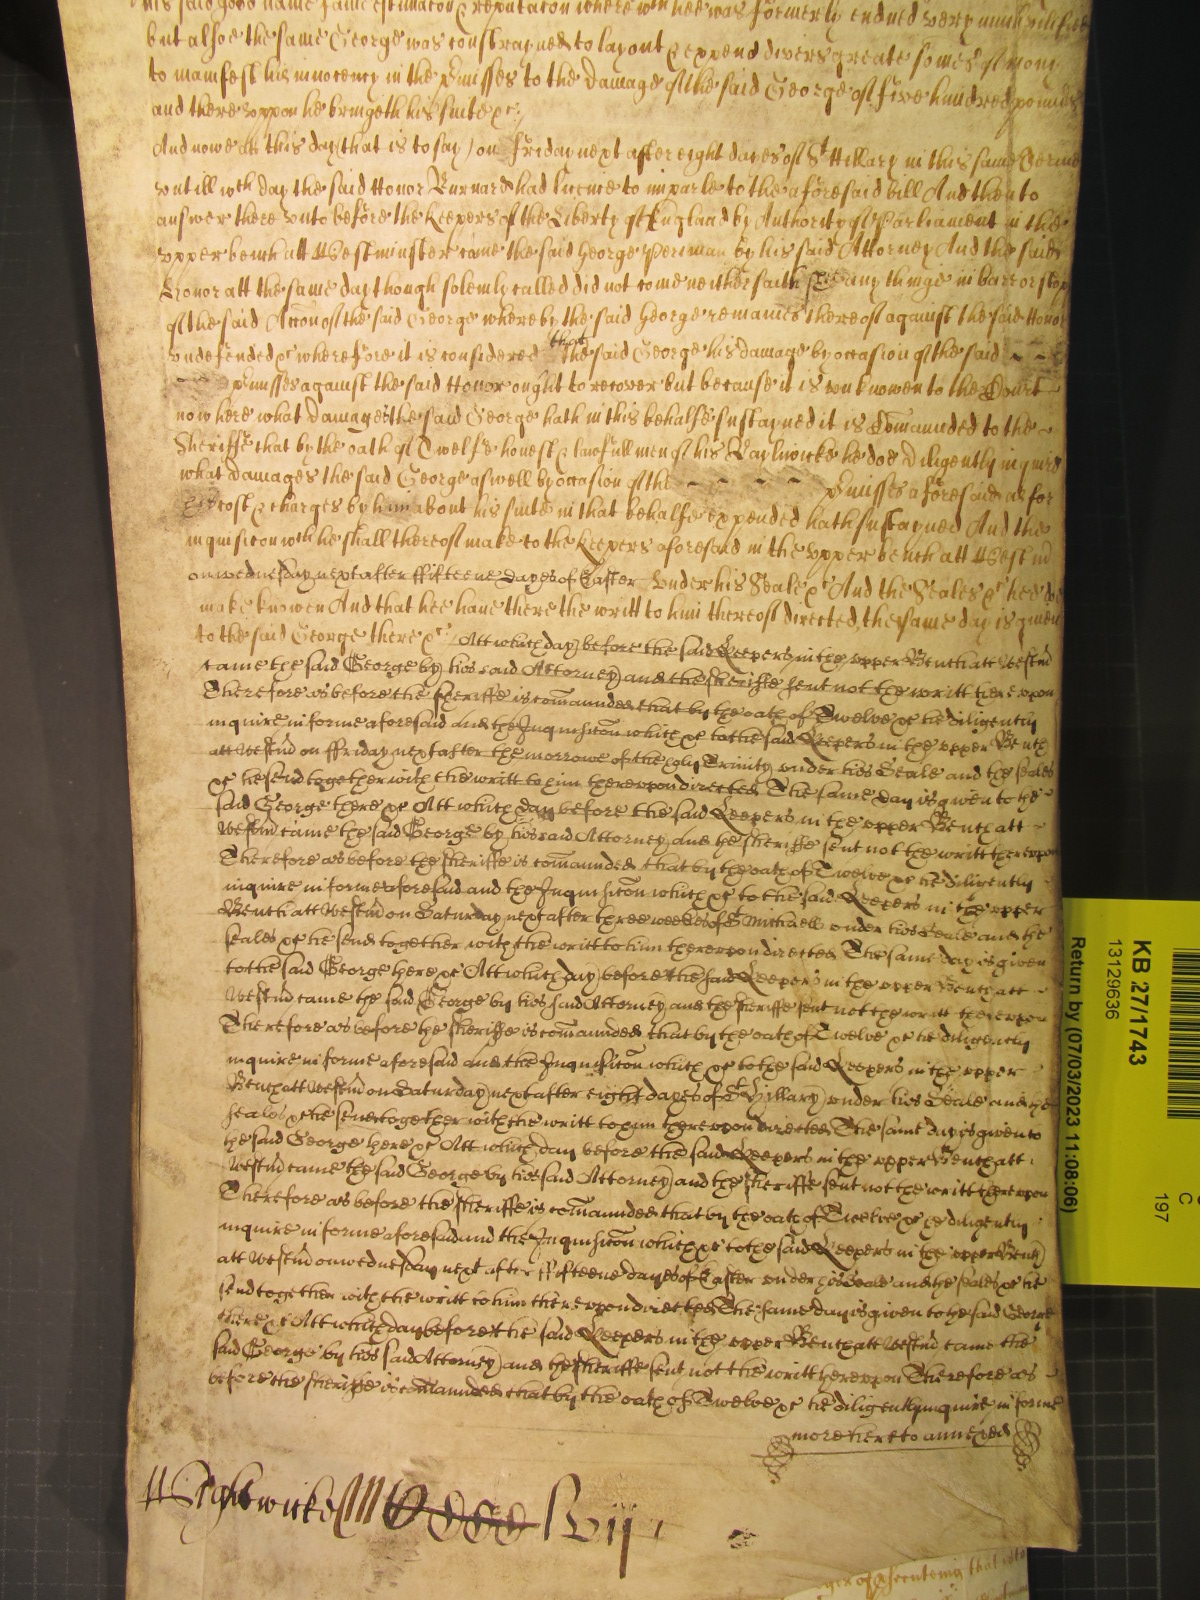 his said good name fame estimacon & reputacon where wth hee was formerly endued very much
but alsoe the same George was constrayned to lay out & expend divers greate somes of mony
to manifest his innocency in the pmisses to the damage of the said George of five hundred pounds
and there uppon he bringeth his suite &c
And nowe att this day (that is to say) on Friday next after eight dayes of St Hillary in this same Terme
untill wch day the said Honor Burnard had licence to imparle to the aforesaid bill And then to
answer there unto before the Keepers of the Liberty of England by Authority of Parliament in the
upper bench att Westminster came the said George Periman by his said Attorney And the said
Honor att the same day though solemly called did not come neither saith any thinge in barr or stopp
of the said Accon of the said George whereby the said George remaines thereof against the said Honor
undefended &c wherefore it is considered that the said George his damage by occasion of the said
pmisses against the said Honor ought to recover but because it is unknowen to the Court
now here what damages the said George hath in this behalfe sustayned it is Comaunded to the
Sheriffe that by the oath of Twelfe honest & lawfull men of his Bayliwicke he doe Diligently inquire
what damages the said George aswell by occasion of the pmisses aforesaid as for
cost & charges by him about his suite in that behalfe expended hath sustayned And the
inquisicon wch he shall thereof make to the Keepers aforesaid in the upper bench att Westm
on wednesday next after fifteene dayes of Easter under his Seale &c And the Seales &c hee doe
make knowen And that hee have there the writt to him thereof directed, the same day is given
to the said George there &c Att which day before the said Keepers in the upper Bench att Westm
came the said George by his said Attorney and the sheriffe sent not the writt thereupon
Therefore as before the sheriffe is comaunded that by the oath of Twelve &c he diligently
inquire in forme aforesaid and the Inquisicon which &c to the said Keepers in the upper Bench
att Westm on ffriday next after the morrowe of the holy Trinity under his Seale and the seales
&c he send together with the writt to him thereupon directed The same day is given to the
said George there &c Att which day before the said Keepers in the upper Bench att
Westm came the said George by his said Attorney and the sheriffe sent not the writt thereupon
Therefore as before the sheriffe is comaunded that by the oath of Twelve &c he diligently
inquire in forme aforesaid and the Inquisicon which &c to the said Keepers in the upper
Bench att Westm on Saturday next after three weekes of St Michaell under his Seale and the
seales &c he send together with the writt to him thereupon directed The same day is given
to the said George here &c Att which day before the said Keepers in the upper Bench att
Westm came the said George by his said Attorney and the sheriffe sent not the writt thereupon
Therefore as before the sheriffe is comaunded that by the oath of Twelve &c he diligently
inquire in forme aforesaid and the Inquisicon which &c to the said Keepers in the upper
Bench att Westm on Saturday next after eight dayes of St Hillary under his Seale and the
seales &c he send together with the writt to him thereupon directed The same day is given to
the said George here &c Att which day before the said Keepers in the upper Bench att
Westm came the said George by his said Attorney and the sheriffe sent not the writt thereupon
Therefore as before the sheriffe is comaunded that by the oath of Twelve &c he diligently
inquire in forme aforesaid and the Inquisicon which &c to the said Keepers in the upper Bench
att Westm on wednesday next after ffifteene dayes of Easter under his Seale and the seales &c he
send together with the writt to him thereupon directed The same day is given to the said George
there &c Att which day before the said Keepers in the upper Bench att Westm came the
said George by his said Attorney and the sheriffe sent not the writt hereupon Therefore as
before the sheriffe is comaunded that by the oath of Twelve &c he diligently inquire in forme
more hereto annexed
Wightwicke
KB 27/1743
13129636
Return by (07/03/2023 11:08:06)
C
197